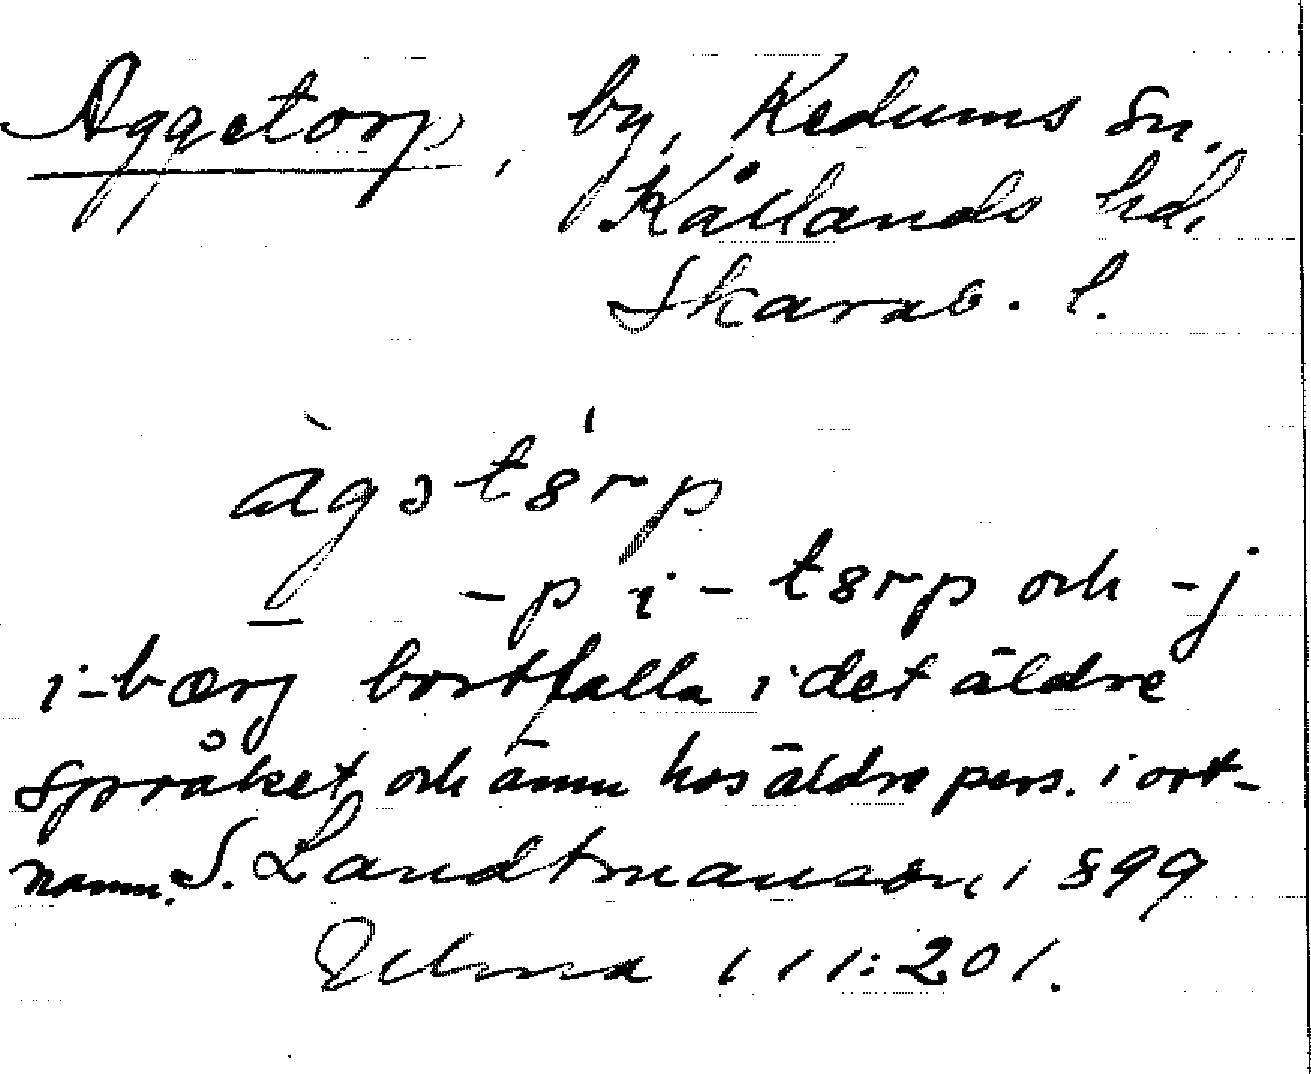 Aggetorp, by, Kedums sn.
Kållands hd,
Skarab. l.
àgət8rp
-p i -t8rp och -j
i -bærj bortfalla i det äldre
språket och ännu hos äldre pers. i ort-
namn. S. Landtmanson, 1899
Ulma 111:201.